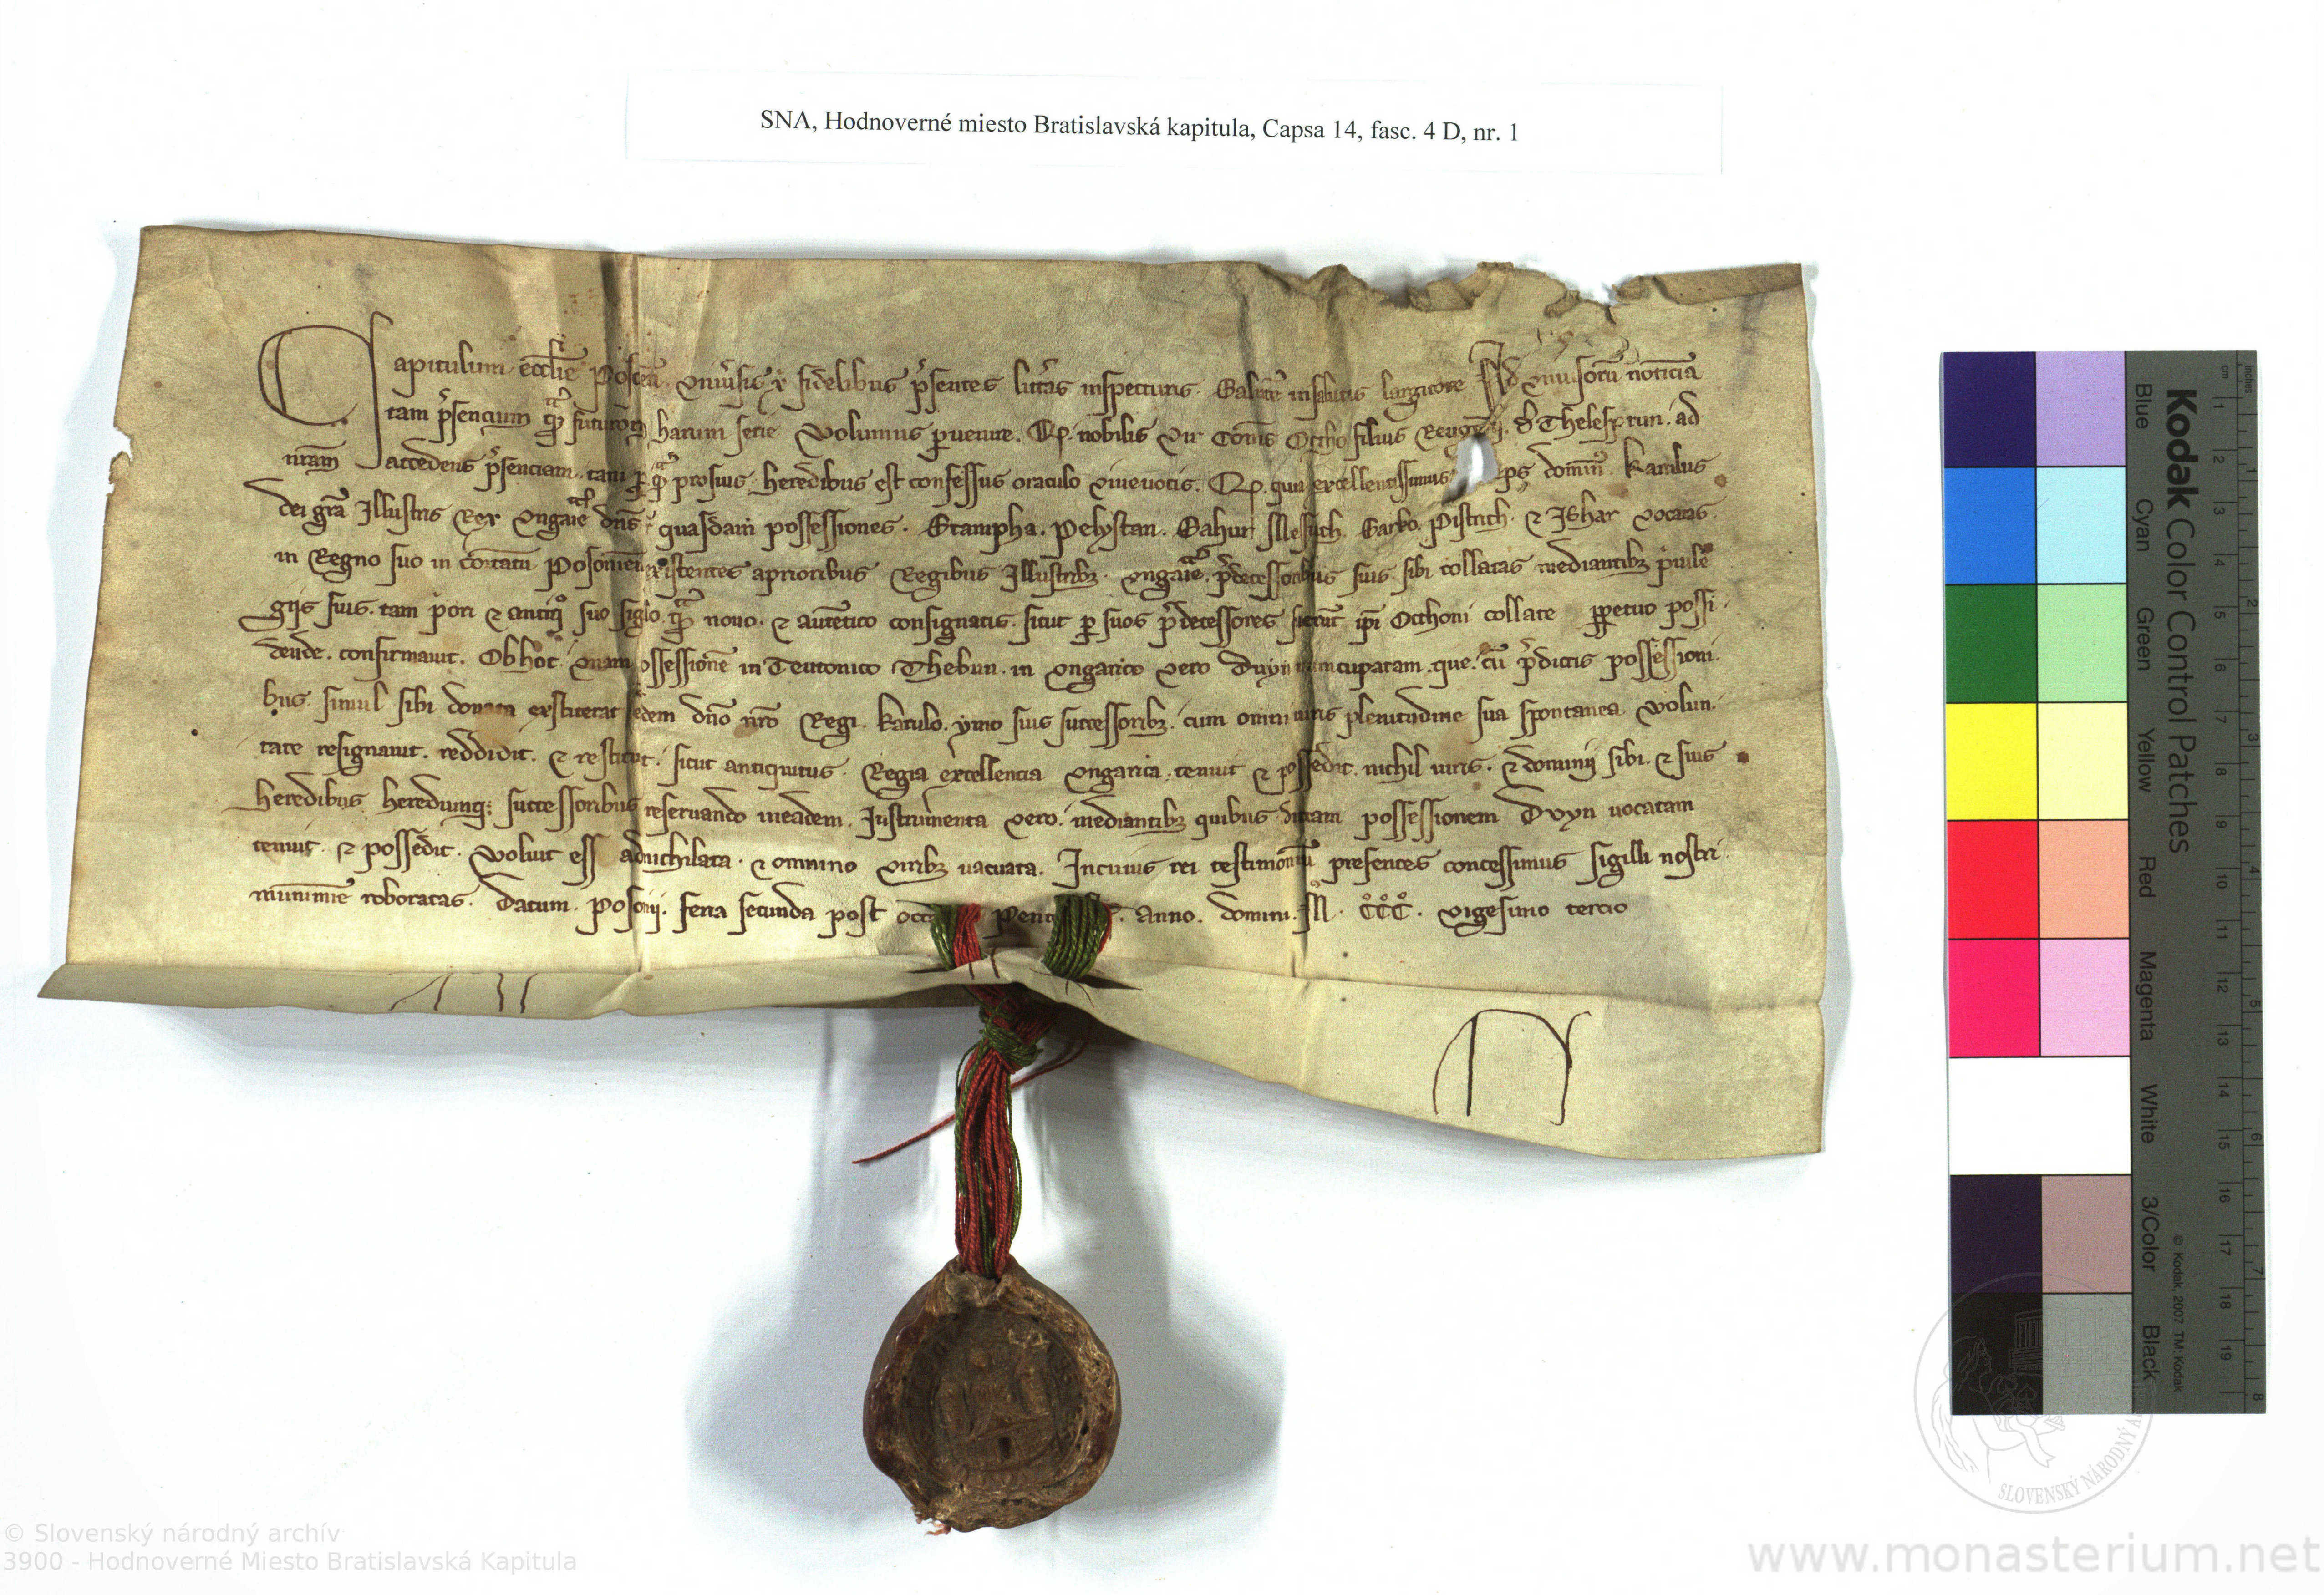 SNA, Hodnoverné miesto Bratislavská kapitula, Capsa 14, fasc. 4 D, nr. 1
Capitulum eccl̄ie Poſoen̄. vniu̾ſis xp̄i fidelibus p̾ſentes litt̾as inſpecturis. Salutē in ſalutis largitore Ad vniu̾ſorū noticiā
tam p̾ſencium q̄ͣ futuroꝝ harum ſerie volumus ꝑuenire. Qꝫ. nobilis vir Comes Ottho filius d̄c̄i Theleſprun. ad
nr̄am accedens p̾ſenciam. tam ꝓ ſe q̄ͣ pro ſuis heredibus eſt confeſſus oraculo viue uocis. Qꝫ. qm̄ excellentiſſimus domin̄ꝰ Karulus
dei gr̄a Illuſtris Rex vngarie dn̄s quaſdam poſſeſſiones. Stampha. Pelyſtan. Sahur Meſuch Garko. Piſtrich. ⁊ IShar vocatas.
in Regno ſuo in comitatu Poſonien̄ exiſtentes a prioribus Regibus Illuſtribꝫ. vngarie. p̾deceſſoribus ſuis ſibi collatas mediantibꝫ priuile
gijs ſuis. tam p̾ori ⁊ antiqͦ ſuo ſigło q̄ͣ nouo. ⁊ autētico conſignatis. ſicut ꝑ ſuos p̾deceſſores fuerūt ip̄i Otthoni collate ꝑpetuo poſſi-
dende. confirmauit. Ob hoc. vnam poſſeſſionē in Teutonico Thebun. in vngarico vero Duyn nuncupatam. que. cū p̾dictis poſſeſſioni-
bus ſimul ſibi donata extiterat eidem dn̄o nr̄o Regi. Karulo. ymo ſuis ſucceſſoribꝫ. cum omni iuris plenitudine ſua ſpontanea volun-
tate reſignauit. reddidit. ⁊ reſtituit. ſicut antiquitus. Regia excellencia vngarica. tenuit ⁊ poſſedit. nichil iuris. ⁊ dominij ſibi. ⁊ ſuis
heredibus heredumqꝫ ſucceſſoribus reſeruando in eadem. Inſtrumenta vero. mediantibꝫ quibus dictam poſſeſſionem Dvyn uocatam
tenuit. ⁊ poſſedit. voluit eſſ adnichilata. ⁊ omnino viribꝫ uacuata. In cuius rei teſtimoniū preſentes conceſſimus ſigilli noſtri.
munimīe roboratas. Datum. Poſonij. feria ſecunda poſt anno. domini. M̊. C̊C̊C̊. vigeſimo tercio
Kodak Color Control Patches
Blue Cyan Green Yellow Red Magenta White 3/Color Black
cm 1 2 3 4 5 6 7 8 9 10 11 12 13 14 15 16 17 18 19
inches 1 2 3 4 5 6 7 8
© Kodak, 2007 TM: Kodak
SLOVENSKÝ NÁRODNÝ
© Slovenský národný archív
3900 - Hodnoverné Miesto Bratislavská Kapitula
www.monasterium.net